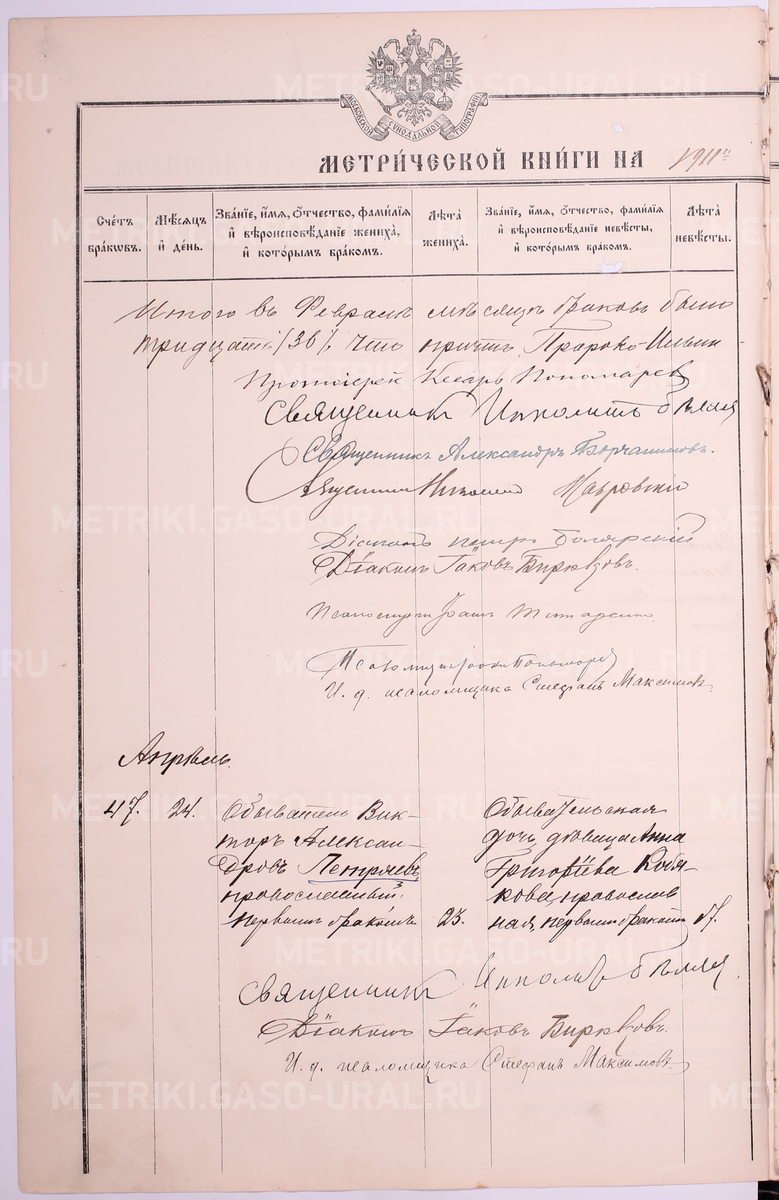 МОСКОВСКОЙ СУНОДАЛЬНОЙ ТИПОГРАФІИ
МЕТРИ́ЧЕСКОЙ КНИ́ГИ НА 1911
Сче́тъ бра́кωвъ.
Мѣ́сяцъ и҆ де́нь.
Зва́ніе, и҆́мя, ѻ҆́тчество, фами́лія и҆ вѣроисповѣ́даніе жениха̀, и҆ кото́рымъ бра́комъ.
Лѣ́та жениха̀.
Зва́ніе, и҆́мя, ѻ҆́тчество, фами́лія и҆ вѣроисповѣ́даніе невѣ́сты, и҆ кото́рымъ бра́комъ.
Лѣ́та невѣ́сты.
Итого въ Февралѣ мѣсяцѣ браковъ было
тридцать /30/. Пророко-Ильин-
Протоіерей Кесарь Пономаревъ
Священникъ Ипполитъ Бѣляя
Священникъ Александръ
Священникъ Николай
Діаконъ Петръ Боярскій
Діаконъ Іаковъ Бирюзовъ.
Псаломщикъ
Псаломщикъ Пономаревъ
И. д. псаломщика Стефанъ Максимовъ
Апрѣль.
47. 24. Обыватель Вик-
торъ Алексан-
дровъ Петряевъ
православный,
первымъ бракомъ 23.
Обывательская
дочь, дѣвица Анна
Григоріева Кобя-
кова, православ
ная, первымъ бракомъ 17.
Священникъ Ипполитъ Бѣляя
Діаконъ Іаковъ Бирюзовъ.
И. д. псаломщика Стефанъ Максимовъ
METRIKI.GASO-URAL.RU